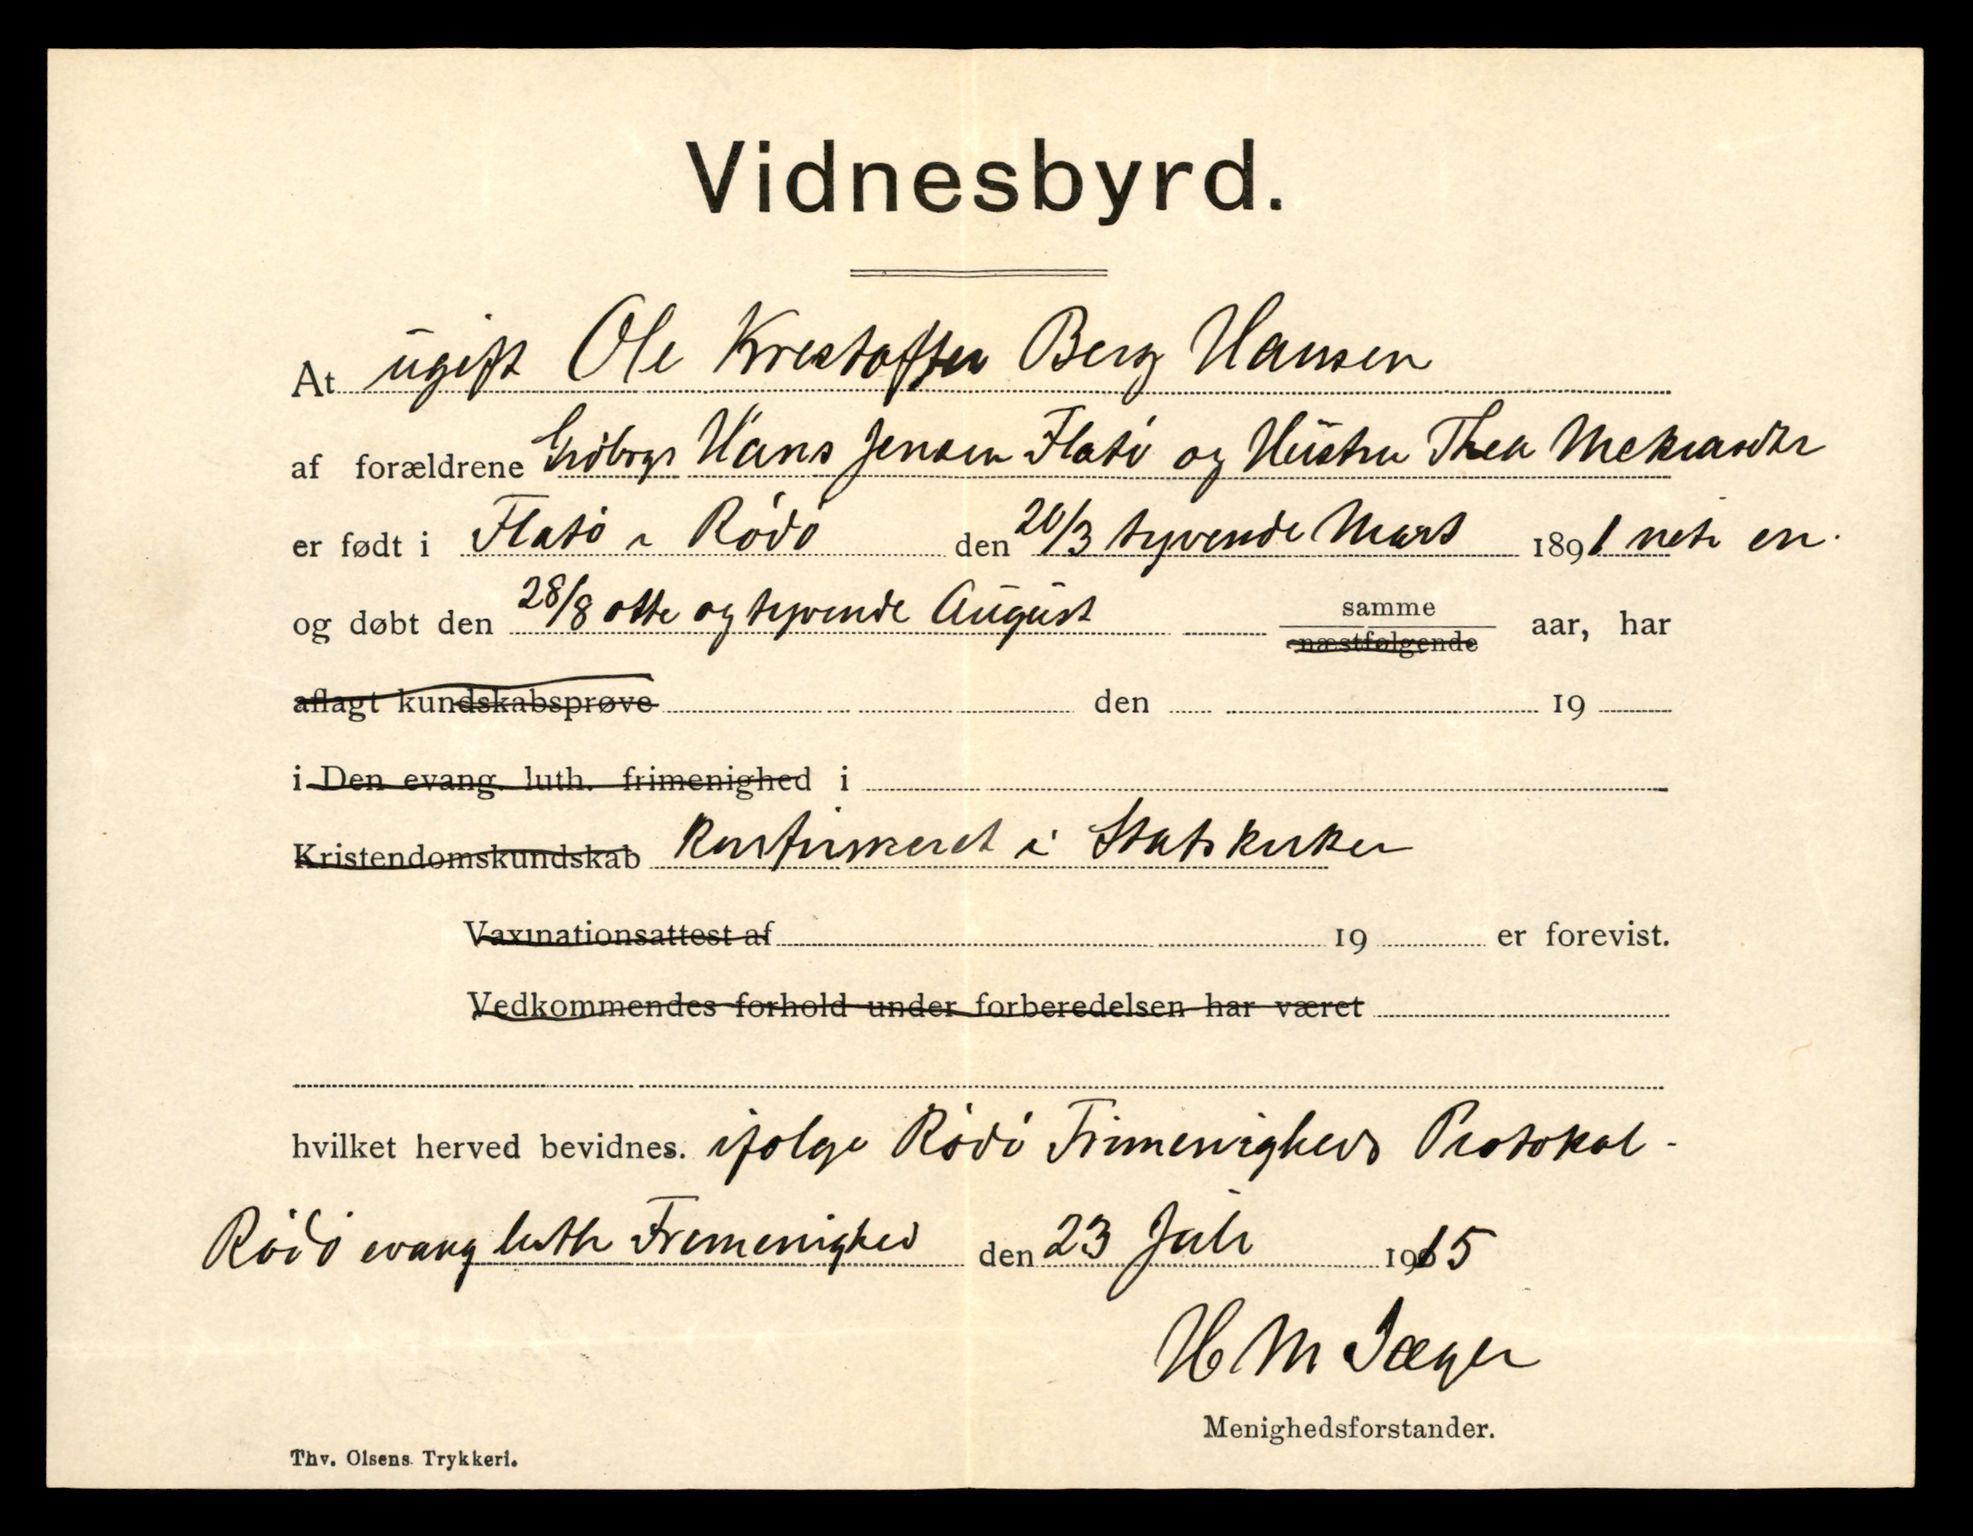 Vidnesbyrd.
At ugift Ole Krestoffer Berg Hansen
af forældrene Grdbrgr Hans Jensen Flatö og Hustru Thea
er født i Flatö i Rödö den 20/3 tyvende Mars 1891 nete en.
og døbt den 28/8 otte og tyvende August samme næstfølgende aar, har
aflagt kundskabsprøve den 19
i Den evang. luth. frimenighed i
Kristendomskundskab Konfirmeret i Statskirken
Vaxinationsattest af 19 er forevist.
Vedkommendes forhold under forberedelsen har været
hvilket herved bevidnes. ifölge Rödö Frimenigheds Protokol -
Rödö evang luth Fremenighed den 23 Juli 1915
H M Jæger
Menighedsforstander.
Thv. Olsens Trykkeri.